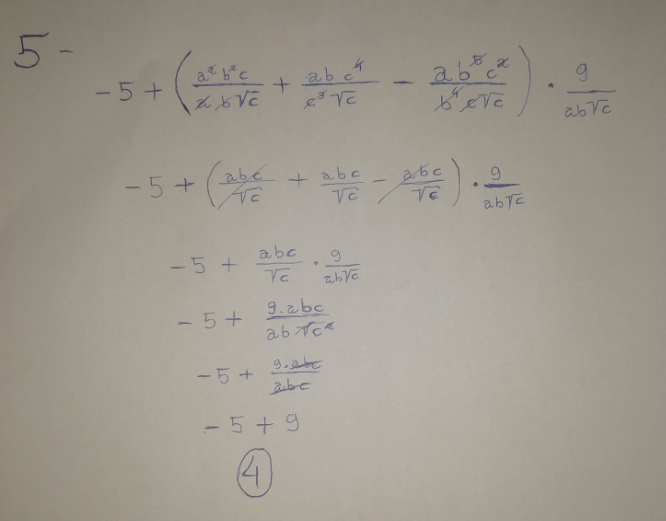 5 -
-5 + (a²b²c / ab√c + abc⁴ / c³√c - ab⁵c² / b⁴c√c) · 9 / ab√c
-5 + (abc / √c + abc / √c - abc / √c) · 9 / ab√c
-5 + abc / √c · 9 / ab√c
-5 + 9.abc / ab√c²
-5 + 9.abc / abc
-5 + 9
4